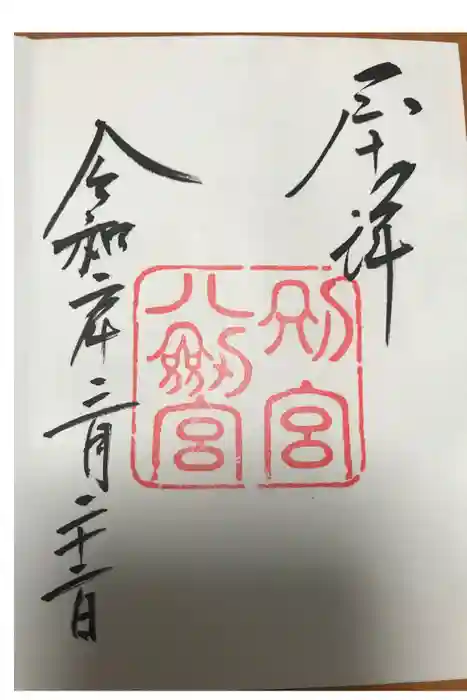 奉拝
別宮
八劔宮
令和二年二月二十二日